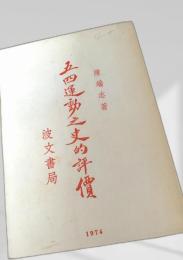 陳端志著
五四運動之史的評價
波文書局
1974